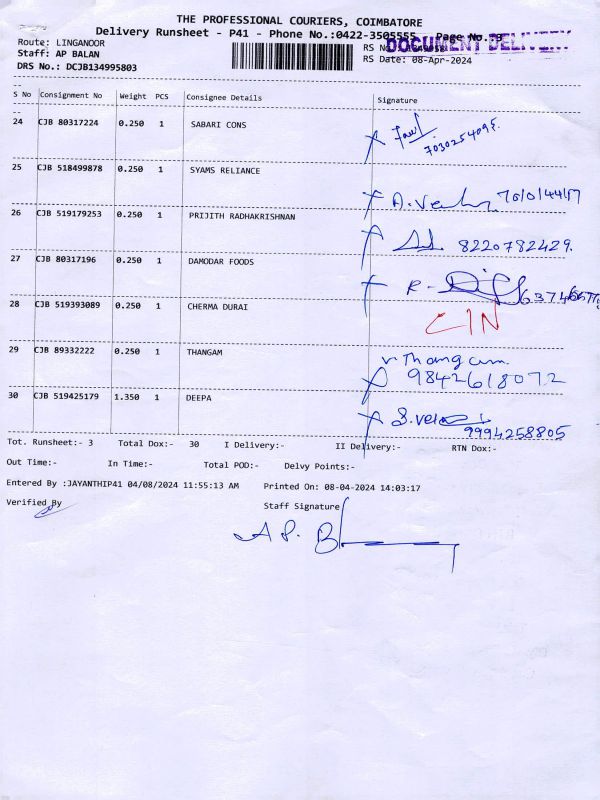 THE PROFESSIONAL COURIERS, COIMBATORE
Delivery Runsheet - P41 - Phone No.:0422-3505555 Page No.:3
Route: LINGANOOR
DOCUMENT DELIVERY
Staff: AP BALAN
RS Date: 08-Apr-2024
DRS No.: DCJB134995803
S No Consignment No Weight PCS Consignee Details Signature
24 CJB 80317224 0.250 1 SABARI CONS
7030254095.
25 CJB 518499878 0.250 1 SYAMS RELIANCE
26 CJB 519179253 0.250 1 PRIJITH RADHAKRISHNAN
8220782429.
27 CJB 80317196 0.250 1 DAMODAR FOODS
28 CJB 519393089 0.250 1 CHERMA DURAI
CIN
29 CJB 89332222 0.250 1 THANGAM
9842618072
30 CJB 519425179 1.350 1 DEEPA
9994258805
Tot. Runsheet:- 3 Total Dox:- 30 I Delivery:- II Delivery:- RTN Dox:-
Out Time:- In Time:- Total POD:- Delvy Points:-
Entered By :JAYANTHIP41 04/08/2024 11:55:13 AM Printed On: 08-04-2024 14:03:17
Verified By Staff Signature